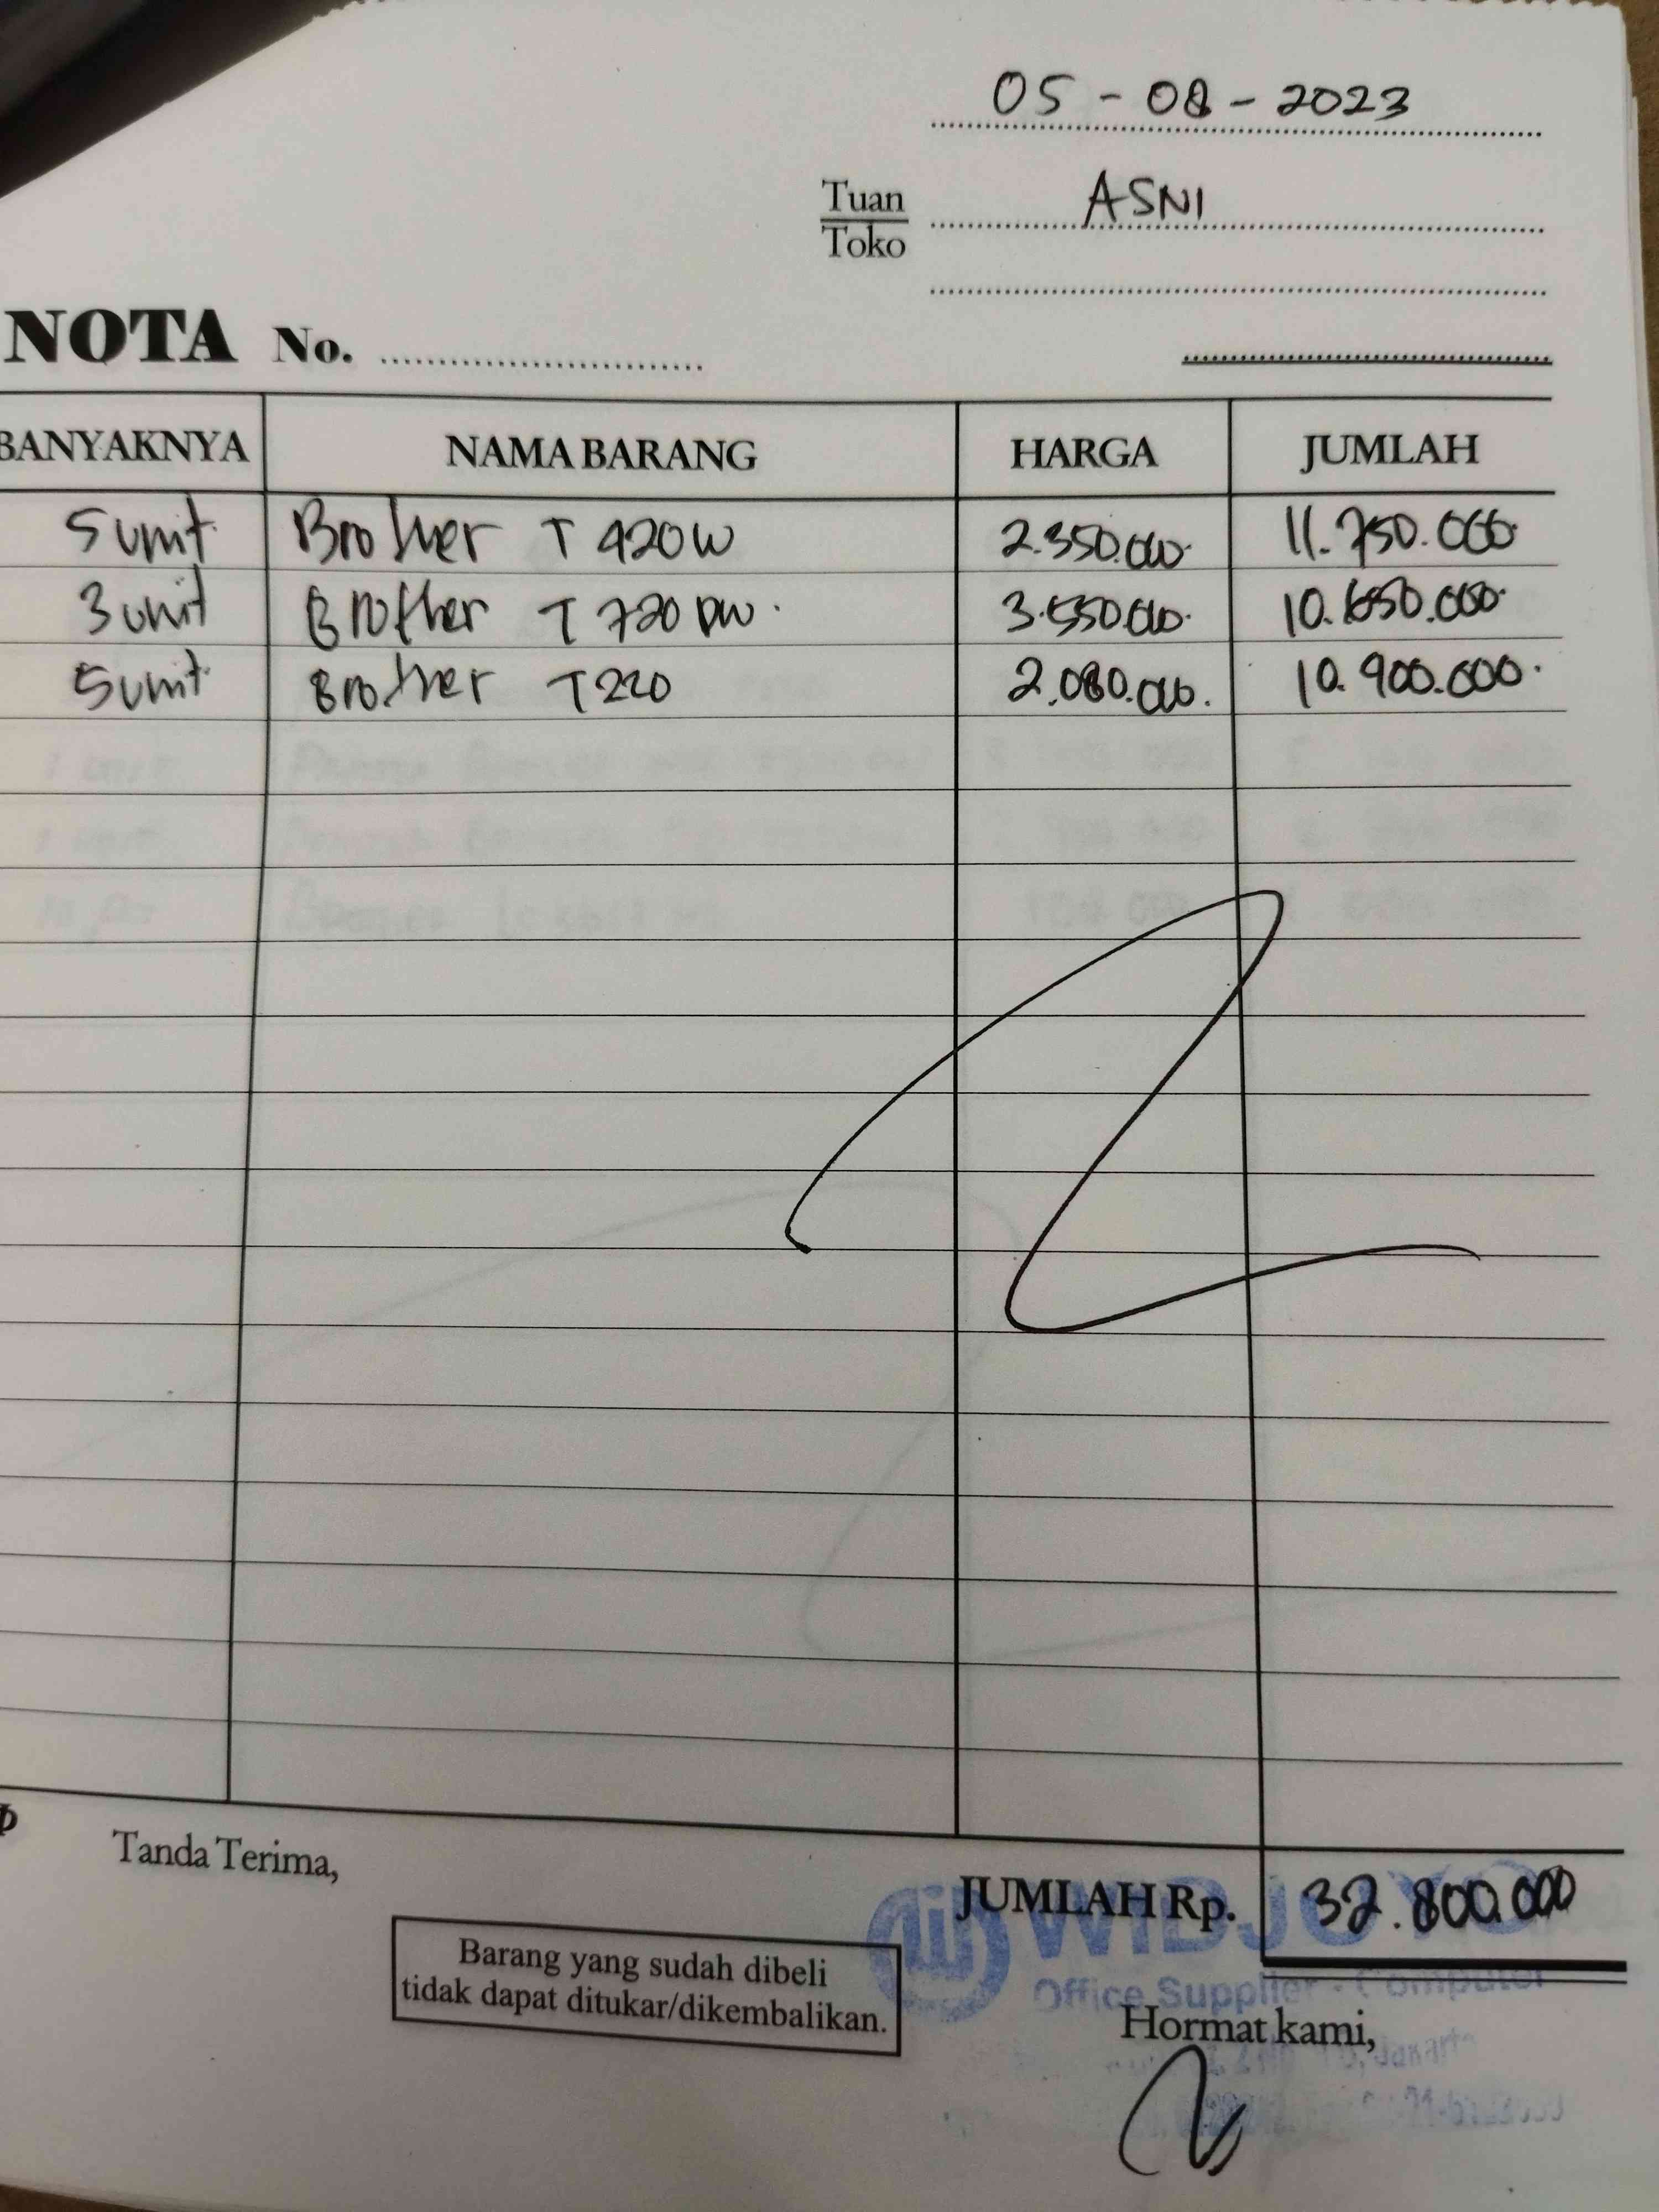 05 - 08 - 2023
Tuan ASNI
Toko
NOTA No.
BANYAKNYA NAMA BARANG HARGA JUMLAH
5 unit Brother T 420W 2.350.000 11.750.000
3 unit Brother T 720 DW 3.550.000 10.650.000
5 unit Brother T220 2.080.000 10.900.000
Tanda Terima,
JUMLAH Rp. 32.800.000
WIBJOYO
Office Supplier - Computer
Barang yang sudah dibeli
tidak dapat ditukar/dikembalikan.
Hormat kami,
Jakarta